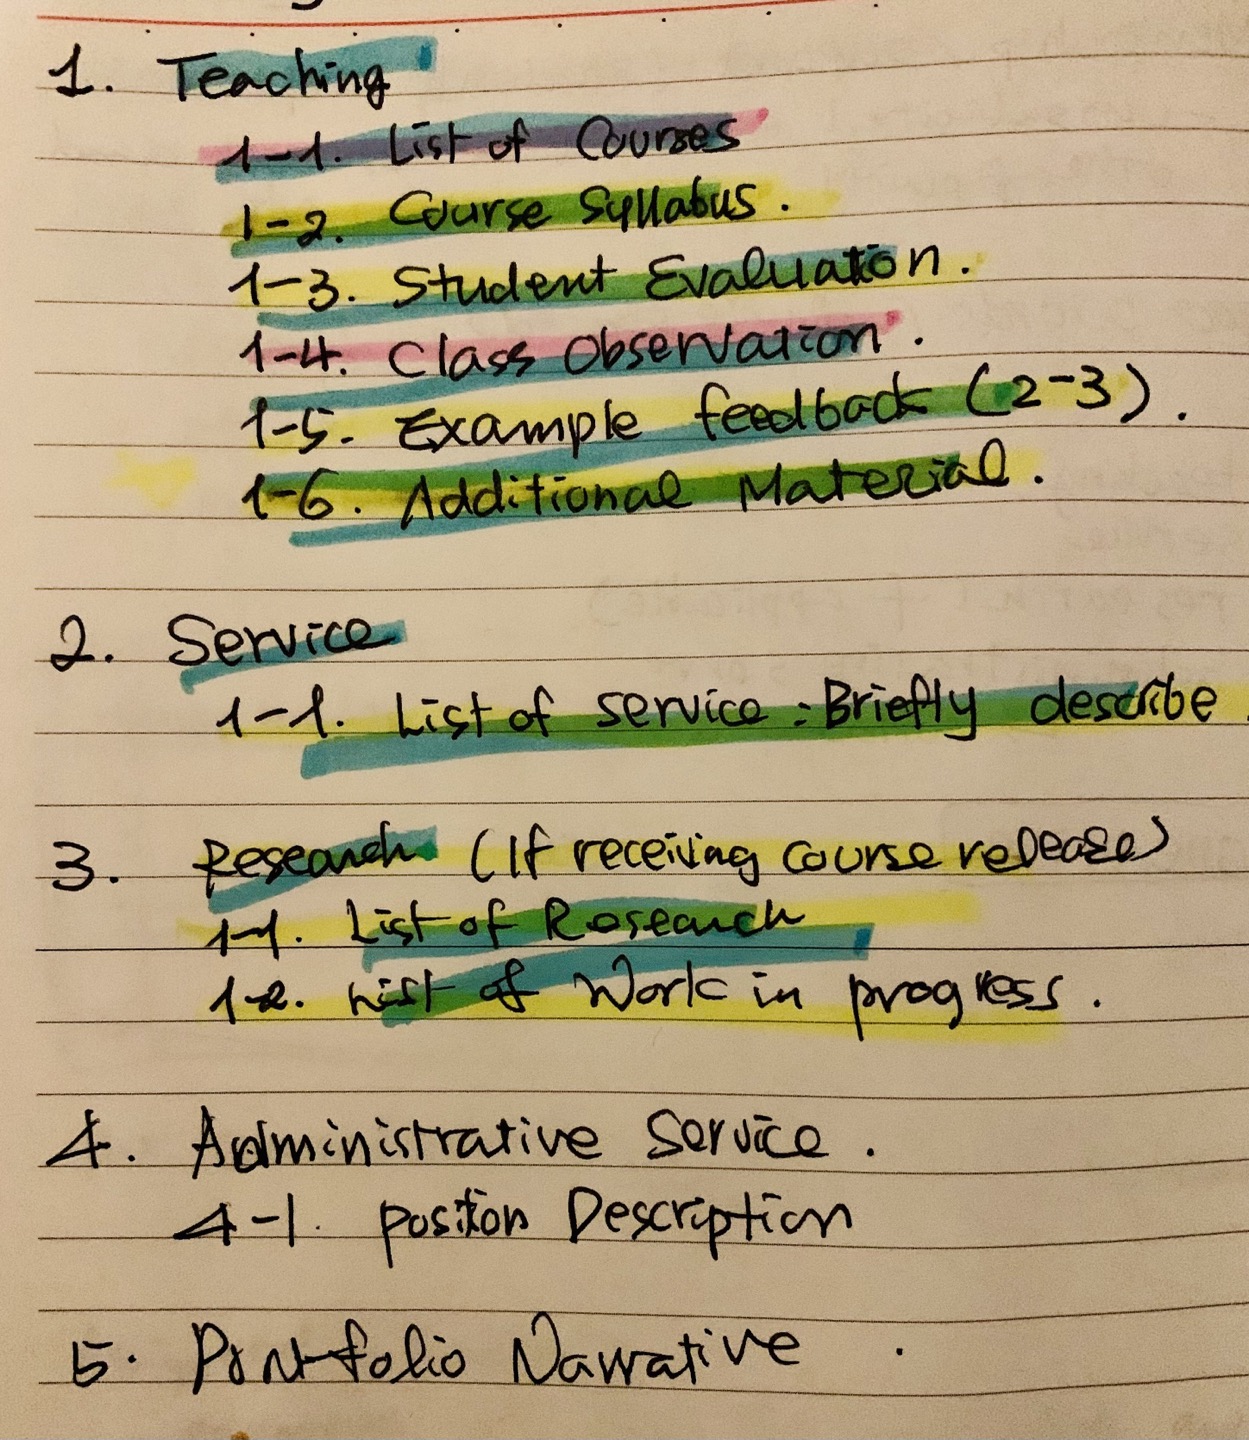 1. Teaching
1-1. List of Courses
1-2. Course Syllabus.
1-3. Student Evaluation.
1-4. Class Observation.
1-5. Example feedback (2-3).
1-6. Additional Material.
2. Service
1-1. List of service: Briefly describe.
3. Research (If receiving course release)
1-1. List of Research
1-2. List of Work in progress.
4. Administrative Service.
4-1. Position Description
5. Portfolio Narrative.